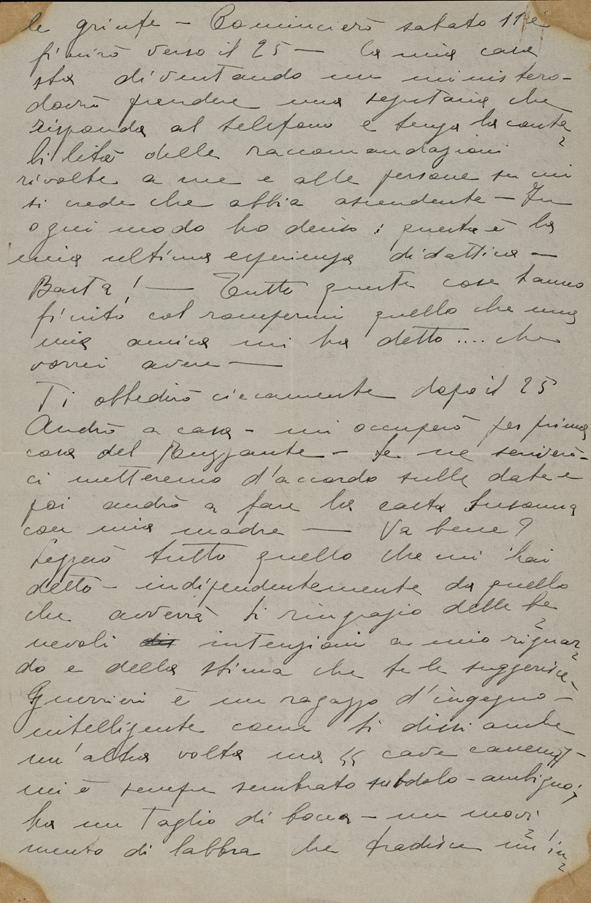 le grinfe - Comincierò sabato 11 e
finirò verso il 25 - La mia casa
sta diventando un ministero -
dovrò prendere una segretaria che
risponda al telefono e tenga la conta
bilità delle raccomandazioni
rivolte a me e alle persone su cui
si crede che abbia ascendente - In
ogni modo ho deciso; questa è la
mia ultima esperienza didattica -
Basta! - Tutte queste cose hanno
finito col rompermi quello che una
mia amica mi ha detto .... che
vorrei avere -
Ti obbedirò ciecamente dopo il 25
Andrò a casa - mi occuperò per prima
cosa del Ruzzante - te ne scriverò -
ci metteremo d'accordo sulle date e
poi andrò a fare la casta Susanna
con mia madre - Va bene?
Leggerò tutto quello che mi hai
detto - indipendentemente da quello
che avverrà ti ringrazio delle be
nevoli intenzioni a mio riguar
do e della stima che te le suggerisce
Guerrieri è un ragazzo d'ingegno -
intelligente come ti dissi anche
un'altra volta ma " cave canem" -
mi è sempre sembrato subdolo - ambiguo;
ha un taglio di bocca - un movi
mento di labbra che tradisce un'in